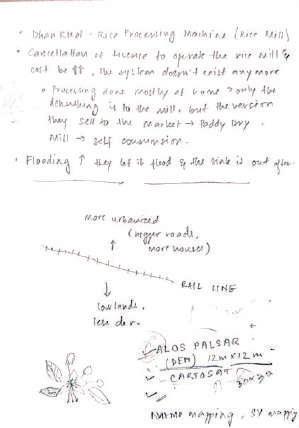 • Dhan Khal - Rice Processing Machine (Rice Mill)
• Cancellation of Licence to operate the rice mill &
cost be ↑↑, the system doesn't exist anymore
• Processing done mostly at home → only the
dehusking is to the mill. but the version
they sell to the market → Paddy Dry.
Mill → self consumption.
• Flooding ↑ they let it flood & the sink is out after
more urbanized
(bigger roads,
more houses)
RAIL LINE
lowlands.
less dev.
ALOS PALSAR
(DEM) 12m x 12m
CARTOSAT
mapping, SV mapping